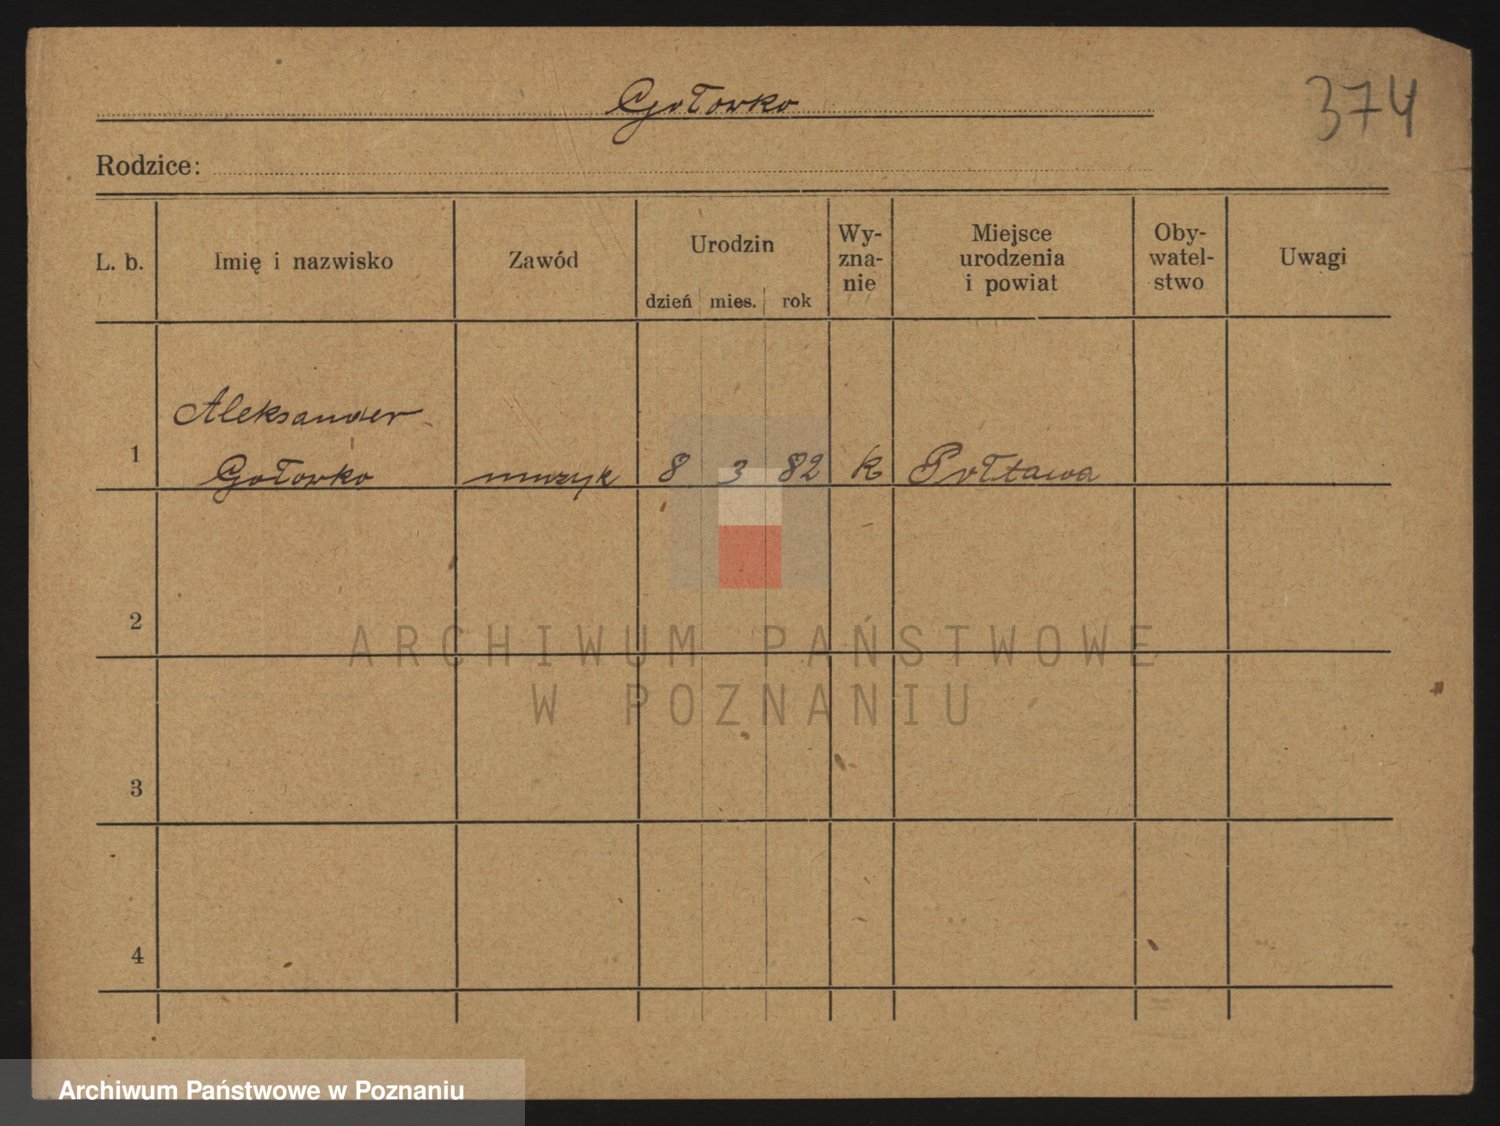 Gołowko
374
Rodzice:
L. b. Imię i nazwisko Zawód Urodzin dzień mies. rok Wy-zna-nie Miejsce urodzenia i powiat Oby-watel-stwo Uwagi
Aleksander
1 Gołowko muzyk 8 3 82 k Połtawa
2
ARCHIWUM PAŃSTWOWE
W POZNANIU
3
4
Archiwum Państwowe w Poznaniu